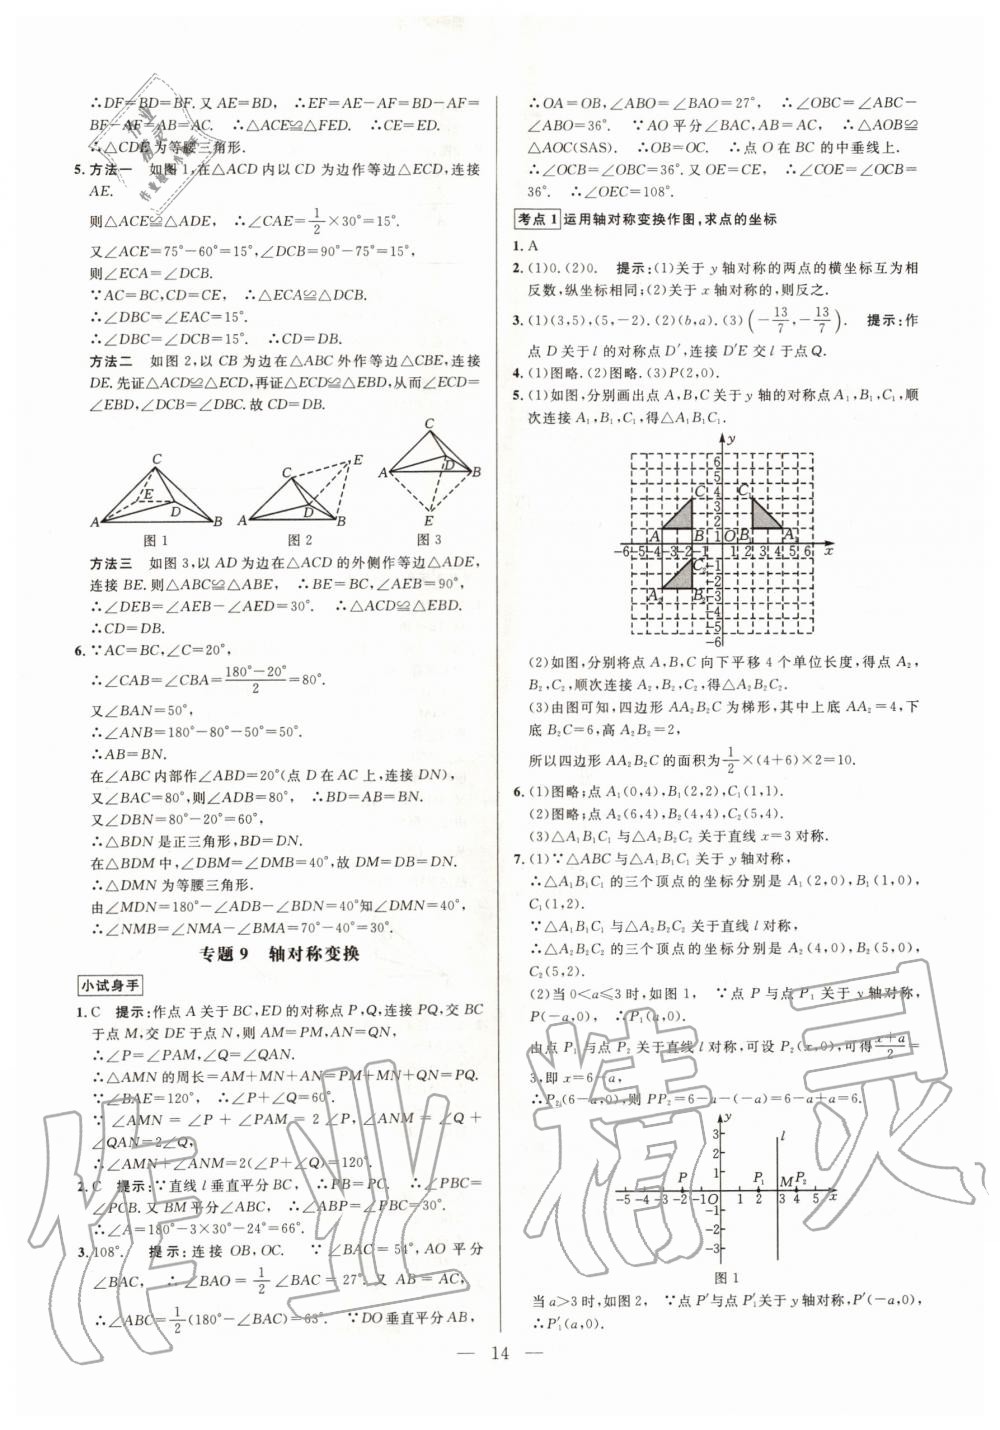 ∴DF=BD=BF.又AE=BD, ∴EF=AE-AF=BD-AF=
BF-AF=AB=AC. ∴△ACE≌△FED. ∴CE=ED.
∴△CDE为等腰三角形.
5. 方法一 如图1,在△ACD内以CD为边作等边△ECD,连接
AE.
则△ACE≌△ADE, ∴∠CAE=1/2×30°=15°.
又∠ACE=75°-60°=15°,∠DCB=90°-75°=15°,
则∠ECA=∠DCB.
∵AC=BC,CD=CE, ∴△ECA≌△DCB.
∴∠DBC=∠EAC=15°.
∴∠DBC=∠DCB=15°. ∴CD=DB.
方法二 如图2,以CB为边在△ABC外作等边△CBE,连接
DE.先证△ACD≌△ECD,再证△ECD≌△EBD,从而∠ECD=
∠EBD,∠DCB=∠DBC.故CD=DB.
C
E
D
A
B
图1
C
E
D
A
B
图2
C
D
A
B
E
图3
方法三 如图3,以AD为边在△ACD的外侧作等边△ADE,
连接BE.则△ABC≌△ABE, ∴BE=BC,∠AEB=90°,
∴∠DEB=∠AEB-∠AED=30°. ∴△ACD≌△EBD.
∴CD=DB.
6. ∵AC=BC,∠C=20°,
∴∠CAB=∠CBA=(180°-20°)/2=80°.
又∠BAN=50°,
∴∠ANB=180°-80°-50°=50°.
∴AB=BN.
在∠ABC内部作∠ABD=20°(点D在AC上,连接DN),
又∠BAC=80°,则∠ADB=80°, ∴BD=AB=BN.
又∠DBN=80°-20°=60°,
∴△BDN是正三角形,BD=DN.
在△BDM中,∠DBM=∠DMB=40°,故DM=DB=DN.
∴△DMN为等腰三角形.
由∠MDN=180°-∠ADB-∠BDN=40°知∠DMN=40°,
∴∠NMB=∠NMA-∠BMA=70°-40°=30°.
专题9 轴对称变换
小试身手
1. C 提示:作点A关于BC,ED的对称点P,Q,连接PQ,交BC
于点M,交DE于点N,则AM=PM,AN=QN,
∴∠P=∠PAM,∠Q=∠QAN.
∴△AMN的周长=AM+MN+AN=PM+MN+QN=PQ.
∵∠BAE=120°, ∴∠P+∠Q=60°.
∵∠AMN=∠P+∠PAM=2∠P,∠ANM=∠Q+
∠QAN=2∠Q,
∴∠AMN+∠ANM=2(∠P+∠Q)=120°.
2. C 提示:∵直线l垂直平分BC, ∴PB=PC. ∴∠PBC=
∠PCB.又BM平分∠ABC, ∴∠ABP=∠PBC=30°.
∴∠A=180°-3×30°-24°=66°.
3. 108°. 提示:连接OB,OC. ∵∠BAC=54°,AO平分
∠BAC, ∴∠BAO=1/2∠BAC=27°.又AB=AC,
∴∠ABC=1/2(180°-∠BAC)=63°. ∵DO垂直平分AB,
∴OA=OB,∠ABO=∠BAO=27°, ∴∠OBC=∠ABC-
∠ABO=36°. ∵AO平分∠BAC,AB=AC, ∴△AOB≌
△AOC(SAS). ∴OB=OC. ∴点O在BC的中垂线上.
∴∠OCB=∠OBC=36°.又OE=CE, ∴∠COE=∠OCB=
36°. ∴∠OEC=108°.
考点1 运用轴对称变换作图,求点的坐标
1. A
2. (1)0.(2)0. 提示:(1)关于y轴对称的两点的横坐标互为相
反数,纵坐标相同;(2)关于x轴对称的,则反之.
3. (1)(3,5),(5,-2).(2)(b,a).(3)(-13/7,-13/7). 提示:作
点D关于l的对称点D′,连接D′E交l于点Q.
4. (1)图略.(2)图略.(3)P(2,0).
5. (1)如图,分别画出点A,B,C关于y轴的对称点A₁,B₁,C₁,顺
次连接A₁,B₁,C₁,得△A₁B₁C₁.
y
6
5
4
3
2
1
C
C₁
A
B
O
B₁
A₁
-6 -5 -4 -3 -2 -1 1 2 3 4 5 6 x
-1
-2
-3
-4
-5
-6
C₂
A₂
B₂
(2)如图,分别将点A,B,C向下平移4个单位长度,得点A₂,
B₂,C₂,顺次连接A₂,B₂,C₂,得△A₂B₂C₂.
(3)由图可知,四边形AA₂B₂C为梯形,其中上底AA₂=4,下
底B₂C=6,高A₂B₂=2,
所以四边形AA₂B₂C的面积为1/2×(4+6)×2=10.
6. (1)图略;点A₁(0,4),B₁(2,2),C₁(1,1).
(2)图略;点A₂(6,4),B₂(4,4),C₂(5,4).
(3)△A₁B₁C₁与△A₂B₂C₂关于直线x=3对称.
7. (1)∵△ABC与△A₁B₁C₁关于y轴对称,
∴△A₁B₁C₁的三个顶点的坐标分别是A₁(2,0),B₁(1,0),
C₁(1,2).
∵△A₁B₁C₁与△A₂B₂C₂关于直线l对称,
∴△A₂B₂C₂的三个顶点的坐标分别是A₂(4,0),B₂(5,0),
C₂(5,2).
(2)当0<a≤3时,如图1, ∵点P与点P₁关于y轴对称,
P(-a,0), ∴P₁(a,0).
由点P₁与点P₂关于直线l对称,可设P₂(x,0),可得(x+a)/2=
3,即x=6-a,
∴P₂(6-a,0),则PP₂=6-a-(-a)=6-a+a=6.
y
3
2
1
l
P
P₁
M
P₂
-5 -4 -3 -2 -1 O 1 2 3 4 5 x
-1
-2
-3
图1
当a>3时,如图2, ∵点P′与点P′₁关于y轴对称,P′(-a,0),
∴P′₁(a,0).
— 14 —
作业精灵